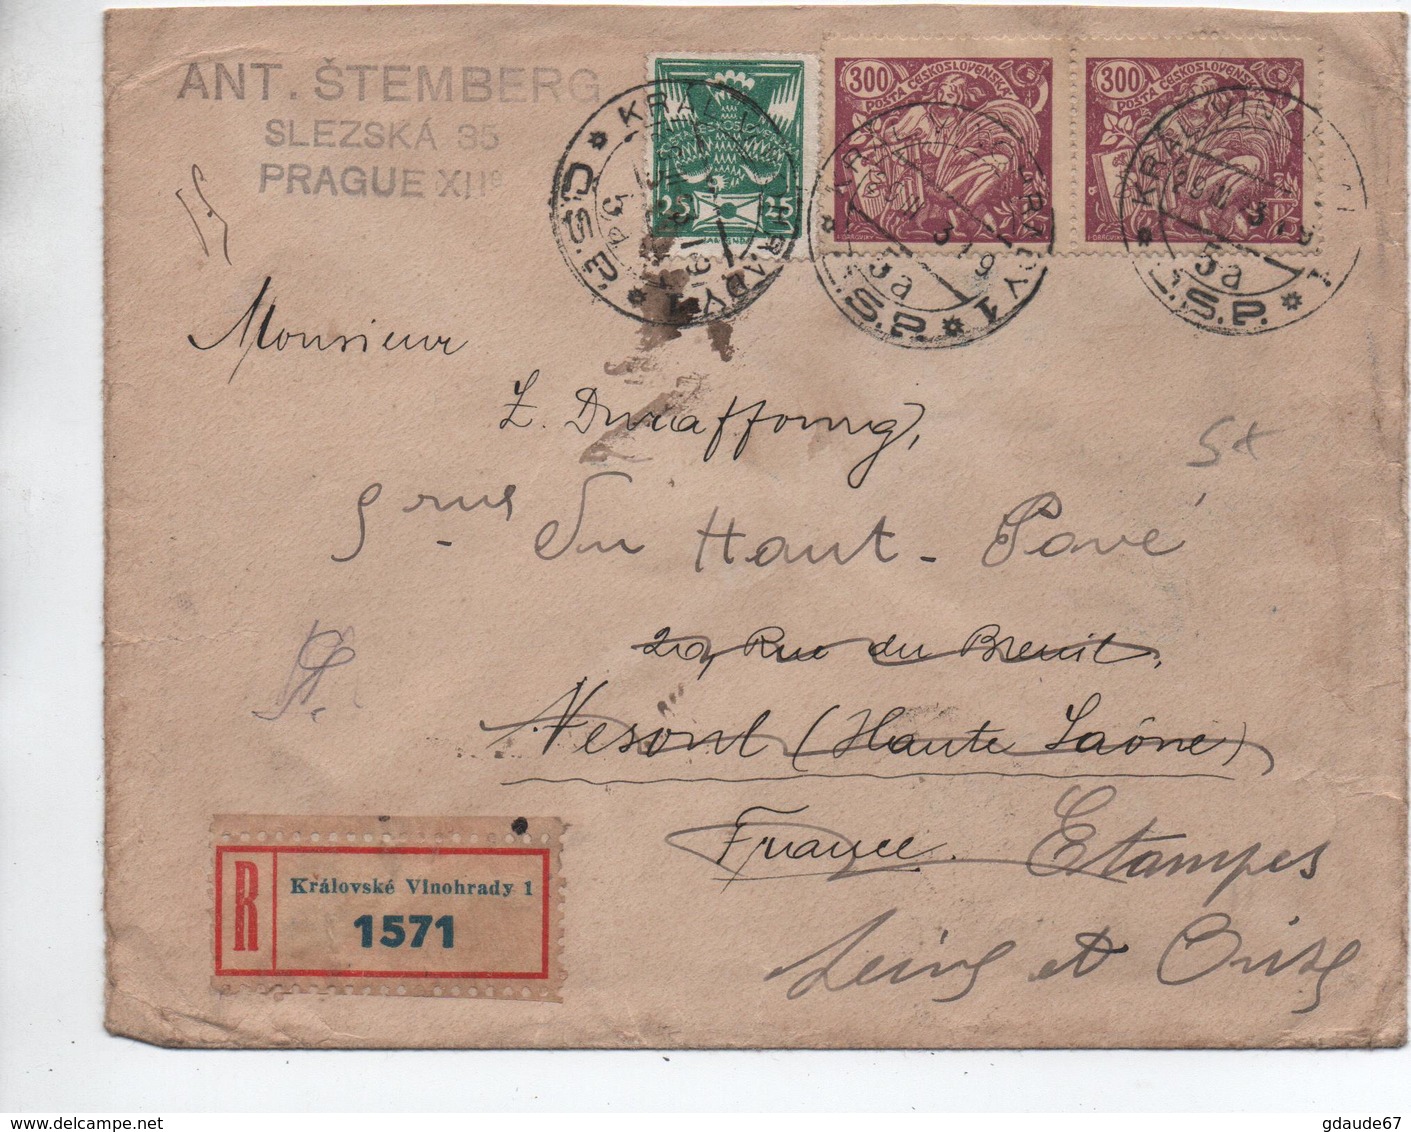 ANT. ŠTEMBERG
SLEZSKÁ 35
PRAGUE XIIe
25 25
300 POŠTA ČESKOSLOVENSKÁ
300 POŠTA ČESKOSLOVENSKÁ
KRÁL. VINOHRADY 1
Č.S.P.
5a
KRÁL. VINOHRADY 1
Č.S.P.
5a
Monsieur
Z. Duraffourg,
5 rue du Haut-Pavé
29, Rue du Breuil,
Vesoul (Haute Saône)
France. Etampes
Seine et Oise
R Královské Vinohrady 1
1571
delcampe.net
gdaude67